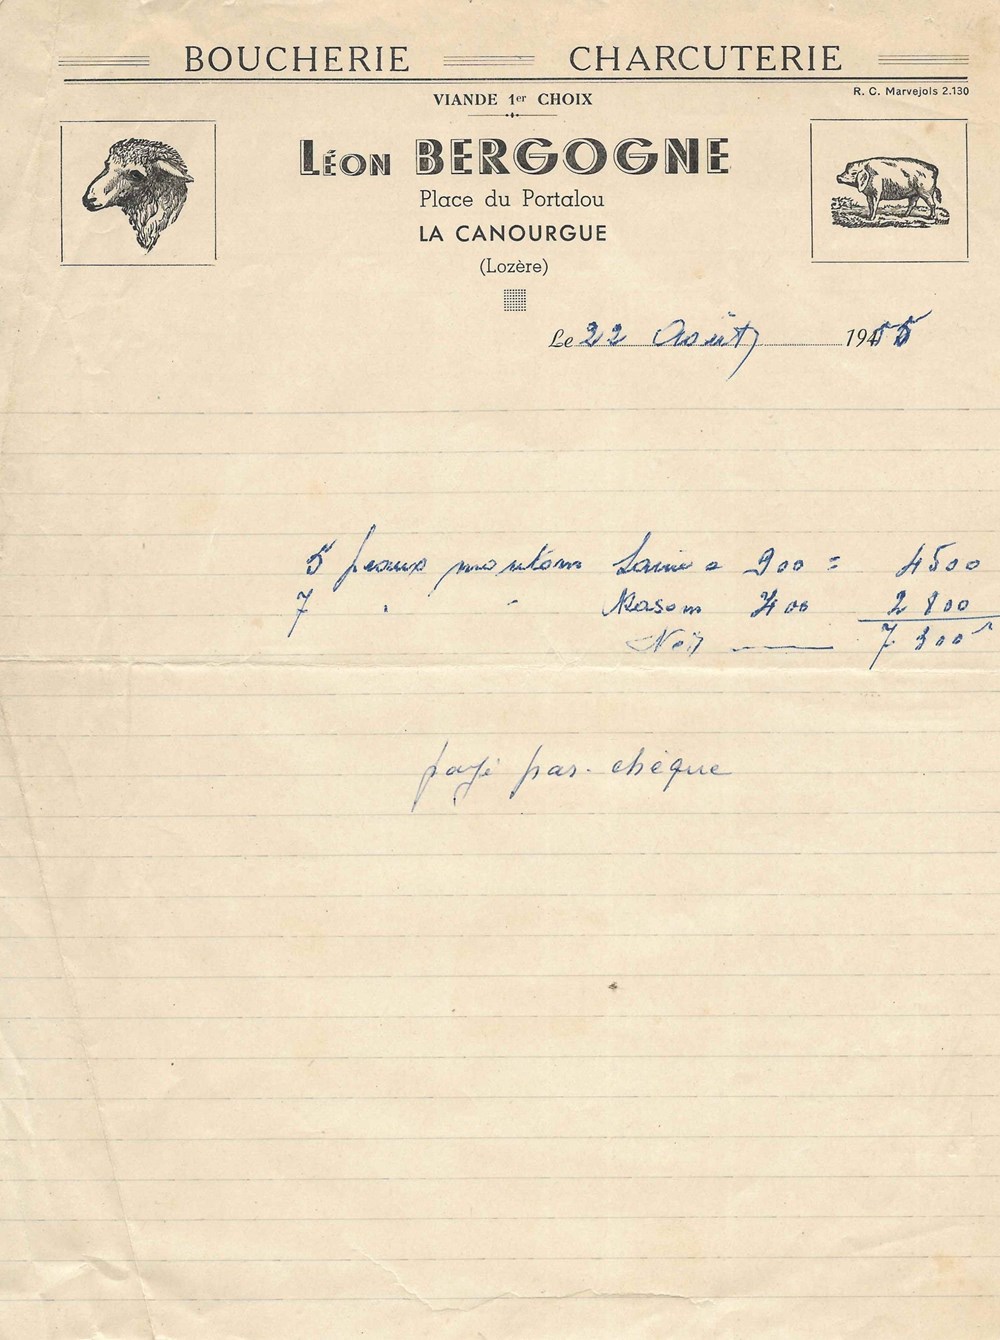 BOUCHERIE CHARCUTERIE
R. C. Marvejols 2.130
VIANDE 1er CHOIX
LÉON BERGOGNE
Place du Portalou
LA CANOURGUE
(Lozère)
Le 22 Août 1955
5 peaux mouton Laine a 900 = 4500
7 " " Rason 400 2800
Net — 7300
payé par chèque